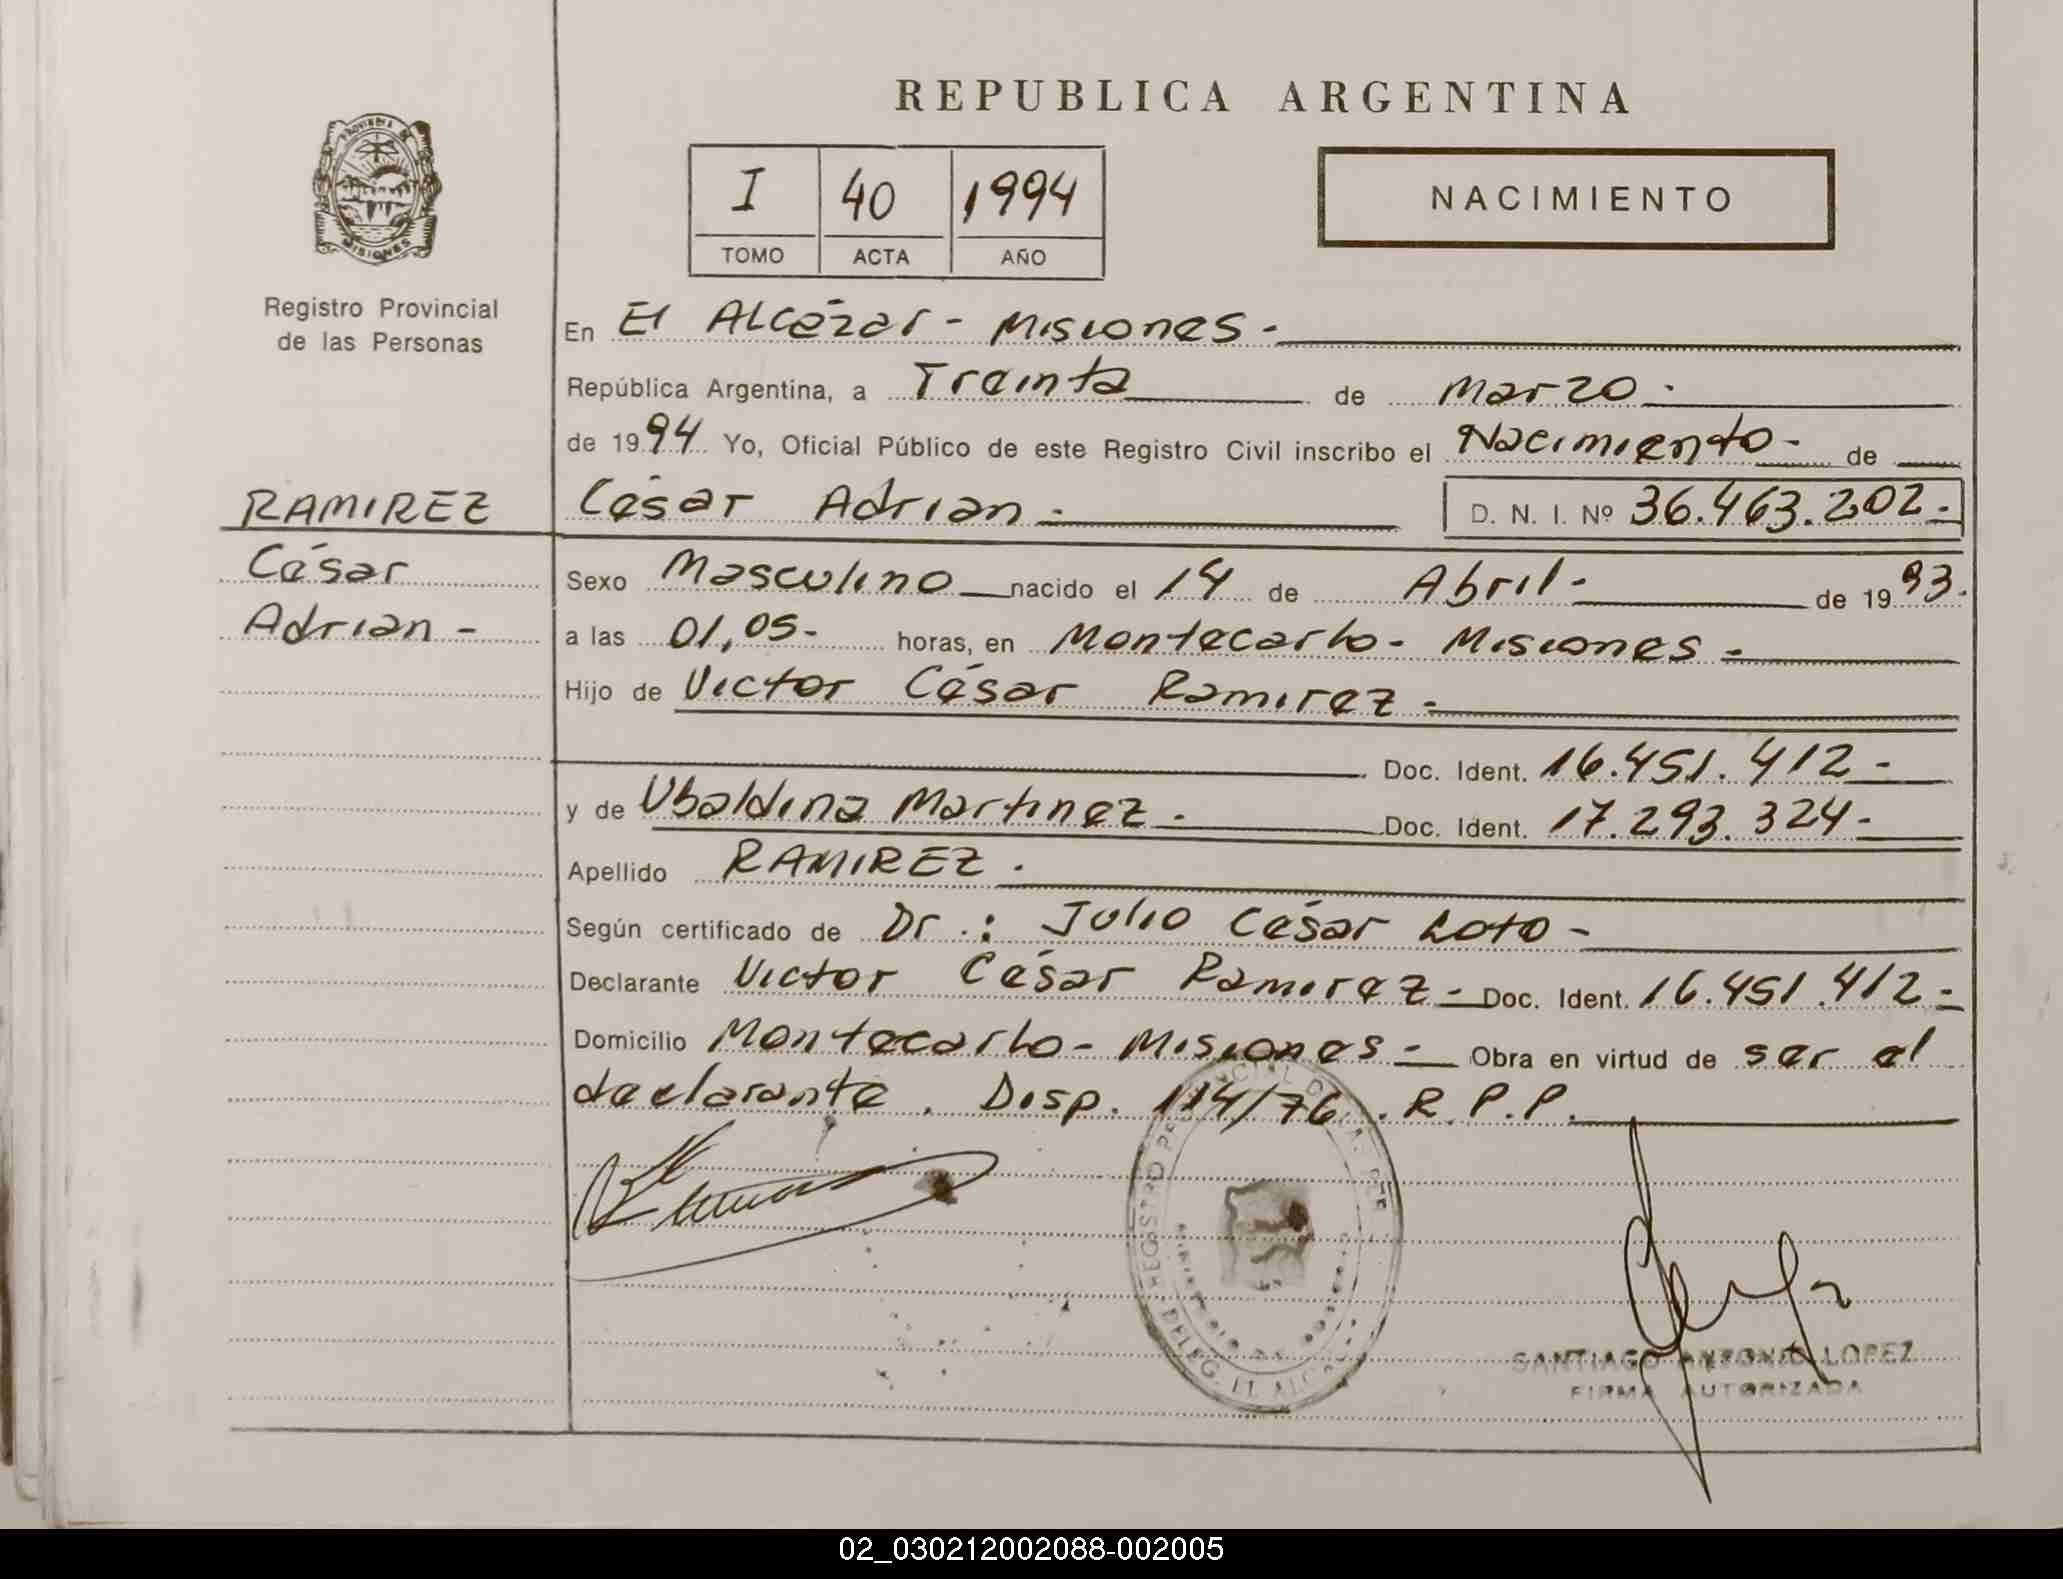 REPUBLICA ARGENTINA
PROVINCIA DE
MISIONES
Registro Provincial
de las Personas
I 40 1994
TOMO ACTA AÑO
NACIMIENTO
En El Alcázar - Misiones -
República Argentina, a Treinta de Marzo -
de 1994 Yo, Oficial Público de este Registro Civil inscribo el Nacimiento - de
RAMIREZ
César
Adrian -
César Adrian - D. N. I. Nº 36.463.202 -
Sexo Masculino nacido el 14 de Abril - de 1993.
a las 01,05 - horas, en Montecarlo - Misiones -
Hijo de Victor César Ramirez -
Doc. Ident. 16.451.412 -
y de Ubaldina Martinez - Doc. Ident. 17.293.324 -
Apellido RAMIREZ .
Según certificado de Dr.: Julio César Loto -
Declarante Victor César Ramirez - Doc. Ident. 16.451.412 -
Domicilio Montecarlo - Misiones - Obra en virtud de ser el
declarante . Disp. 114/76 . R.P.P.
REGISTRO
DELEG. EL
SANTIAGO ANTONIO LOPEZ
FIRMA AUTORIZADA
02_030212002088-002005